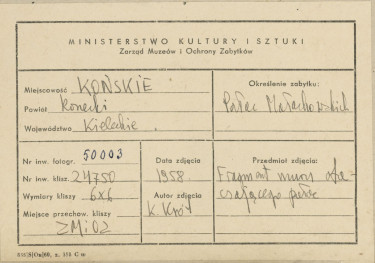 MINISTERSTWO KULTURY I SZTUKI
Zarząd Muzeów i Ochrony Zabytków
Miejscowość KOŃSKIE
Powiat Konecki
Województwo Kieleckie
Określenie zabytku:
Pałac Małachowskich
Nr inw. fotogr. 50003
Nr inw. klisz. 24750
Wymiary kliszy 6x6
Miejsce przechow. kliszy
ZMiOZ
Data zdjęcia
1958
Autor zdjęcia
K. Król
Przedmiot zdjęcia:
Fragment muru ota-
czającego pałac